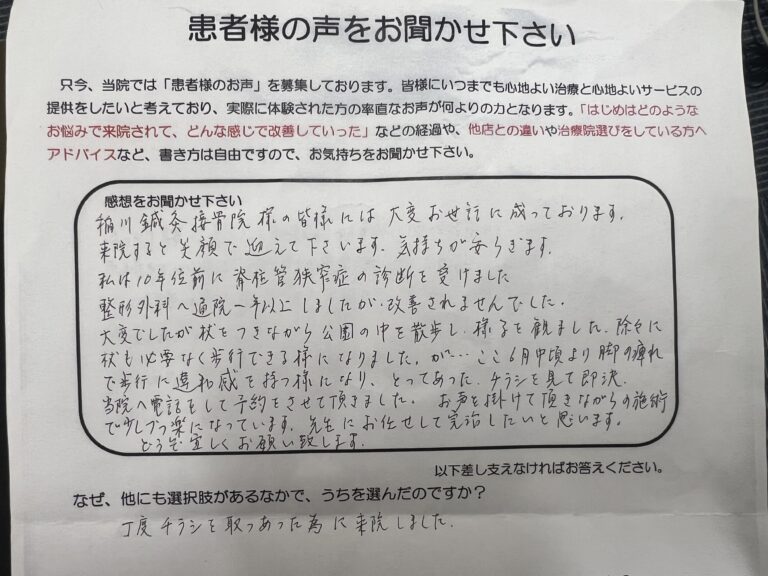 患者様の声をお聞かせ下さい
只今、当院では「患者様のお声」を募集しております。皆様にいつまでも心地よい治療と心地よいサービスの
提供をしたいと考えており、実際に体験された方の率直なお声が何よりの力となります。「はじめはどのような
お悩みで来院されて、どんな感じで改善していった」などの経過や、他店との違いや治療院選びをしている方へ
アドバイスなど、書き方は自由ですので、お気持ちをお聞かせ下さい。
感想をお聞かせ下さい
稲川鍼灸接骨院様の皆様には大変お世話に成っております。
来院すると笑顔で迎えて下さいます。気持ちが安らぎます。
私は10年位前に脊柱管狭窄症の診断を受けました
整形外科へ通院一年以上しましたが、改善されませんでした。
大変でしたが杖をつきながら公園の中を散歩し、様子を観ました。除々に
杖も必要なく歩行できる様になりました。が…ここ6月中頃より脚の痺れ
で歩行に違和感を持つ様になり、とってあった、チラシを見て即決、
当院へ電話をして予約をさせて頂きました。 お声を掛けて頂きながらの施術
で少しづつ楽になっています。先生にお任せして完治したいと思います。
どうぞ宜しくお願い致します。
以下差し支えなければお答えください。
なぜ、他にも選択肢があるなかで、うちを選んだのですか？
丁度チラシを取つあった為に来院しました.